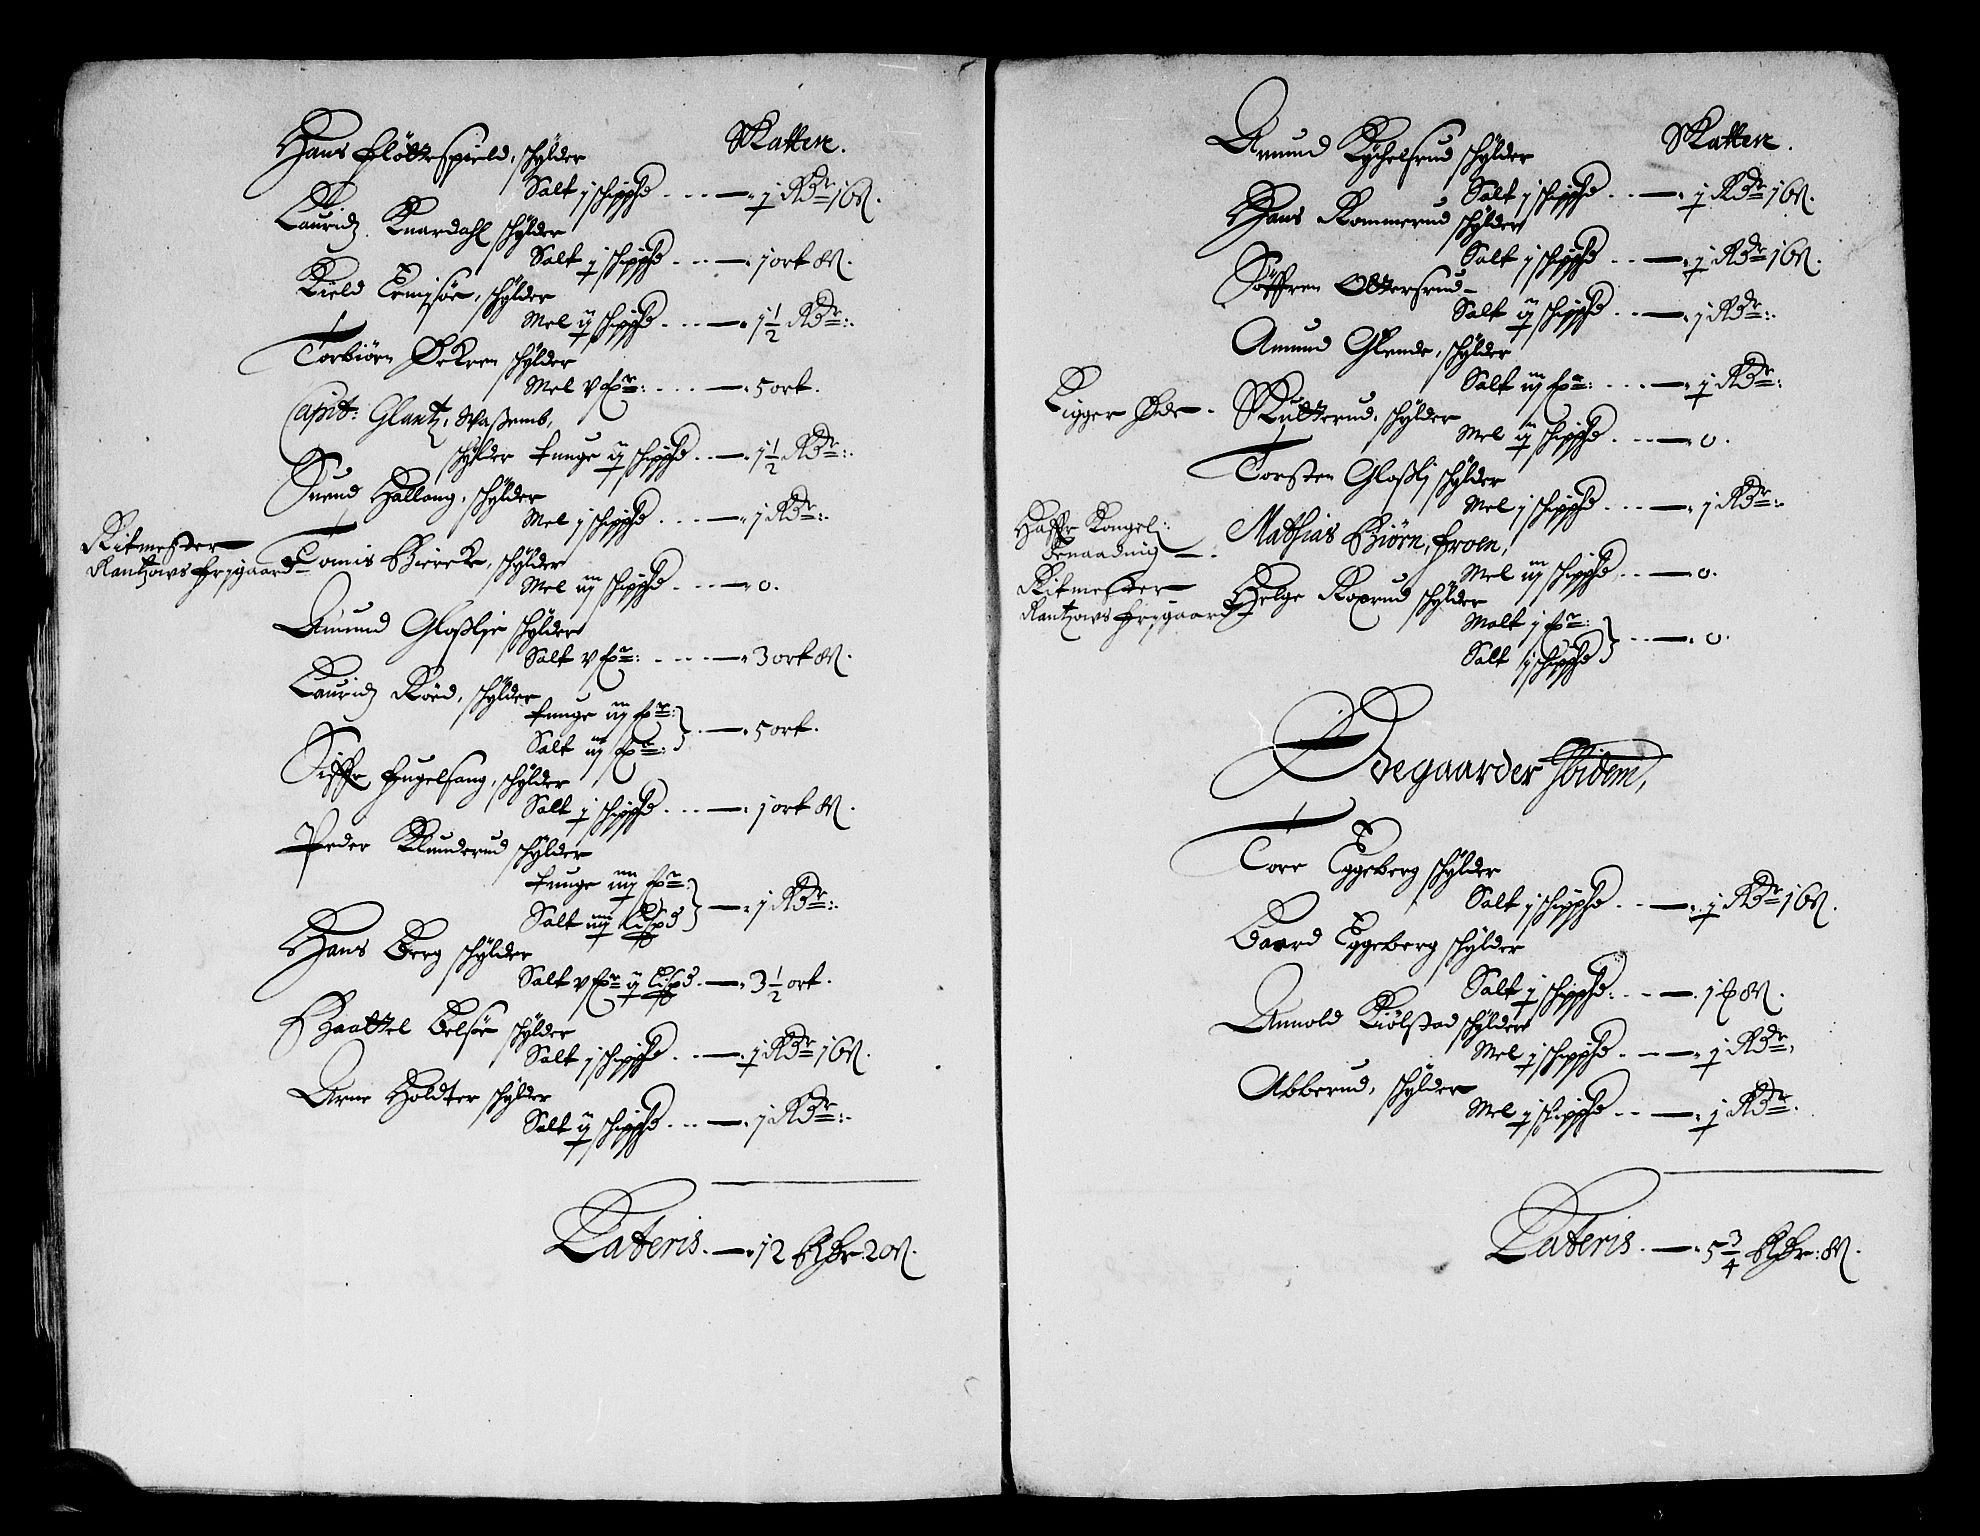 Skatten.
Hans Fløttespield, schylder
Salt j schippd ... — ½ Rdr 16 s.
Lauridz Knardahl schylder
Salt ½ schippd ... — 1 ort 8 s.
Kield Ermisøe, schylder
Mel ij schippd ... — 1½ Rdr:
Torbiørn Eekren schylder
Mel v fr: ... — 5 ort.
Capit: Glantz, Waßemb,
schylder tunge ij schippd ... — 1½ Rdr:
Svend Hallang, schylder
Mel j schippd ... — 1 Rdr:
Ritmester
Rantzows frjgaard
Tomis Biercke, schylder
Mel iij schippd ... — 0.
Amund Gloßlje schylder
Salt v fr: ... — 3 ort 8 s.
Lauridz Røed, schylder
tunge iij fr:
Salt iij fr: } — 5 ort.
Siffr Fugelsang, schylder
Salt ½ schippd ... — 1 ort 8 s.
Peder Klunderud schylder
tunge iiij fr:
Salt iiij Lispd } — 1 Rdr:
Hans Berg schylder
Salt v fr ij Lispd. — 3½ ort.
Baattel Belsøe schylder
Salt j schippd ... — ½ Rdr 16 s.
Arne Holdter schylder
Salt ij schippd ... — 1 Rdr:
Lateris. — 12 Rdr. 20 s.
Skatten.
Amund Kychelsrud schylder
Salt j schippd ... — ½ Rdr 16 s.
Hans Kommerud schylder
Salt j schippd ... — ½ Rdr 16 s.
Søffren Ottersrud
Salt ij schippd ... — 1 Rdr:
Amund Glende, schylder
Salt iij fr: ... — ½ Rdr:
Ligger Øde. Skutterud, schylder
Mel ij schippd ... — 0.
Torsten Gloßlj schylder
Mel j schippd ... — 1 Rdr:
Haffr Kongel:
benaadning — Mathias Biørn, Froen,
Mel iij schippd ... — 0.
Ritmester
Rantzows frjgaard
Helge Roxrud schylder
Malt j fr:
Salt j schippd } ... — 0.
Ødegaarder Ibidem,
Tore Eggeberg schylder
Salt j schippd ... — ½ Rdr 16 s.
Baard Eggeberg schylder
Salt ½ schippd: ... — 1 ort 8 s.
Annold Kiølstad schylder
Mel ½ schippd ... — ½ Rdr,
Abberud, schylder
Mel ½ schippd ... — ½ Rdr.
Lateris. — 5¾ Rdr: 8 s.